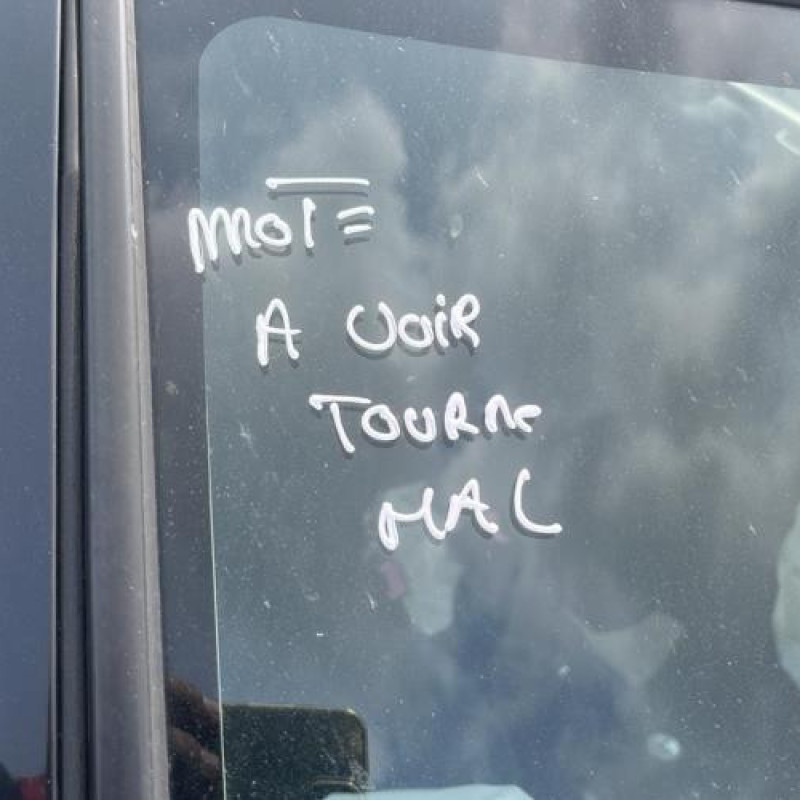 MOTE
A VOIR
TOURNE
MAL